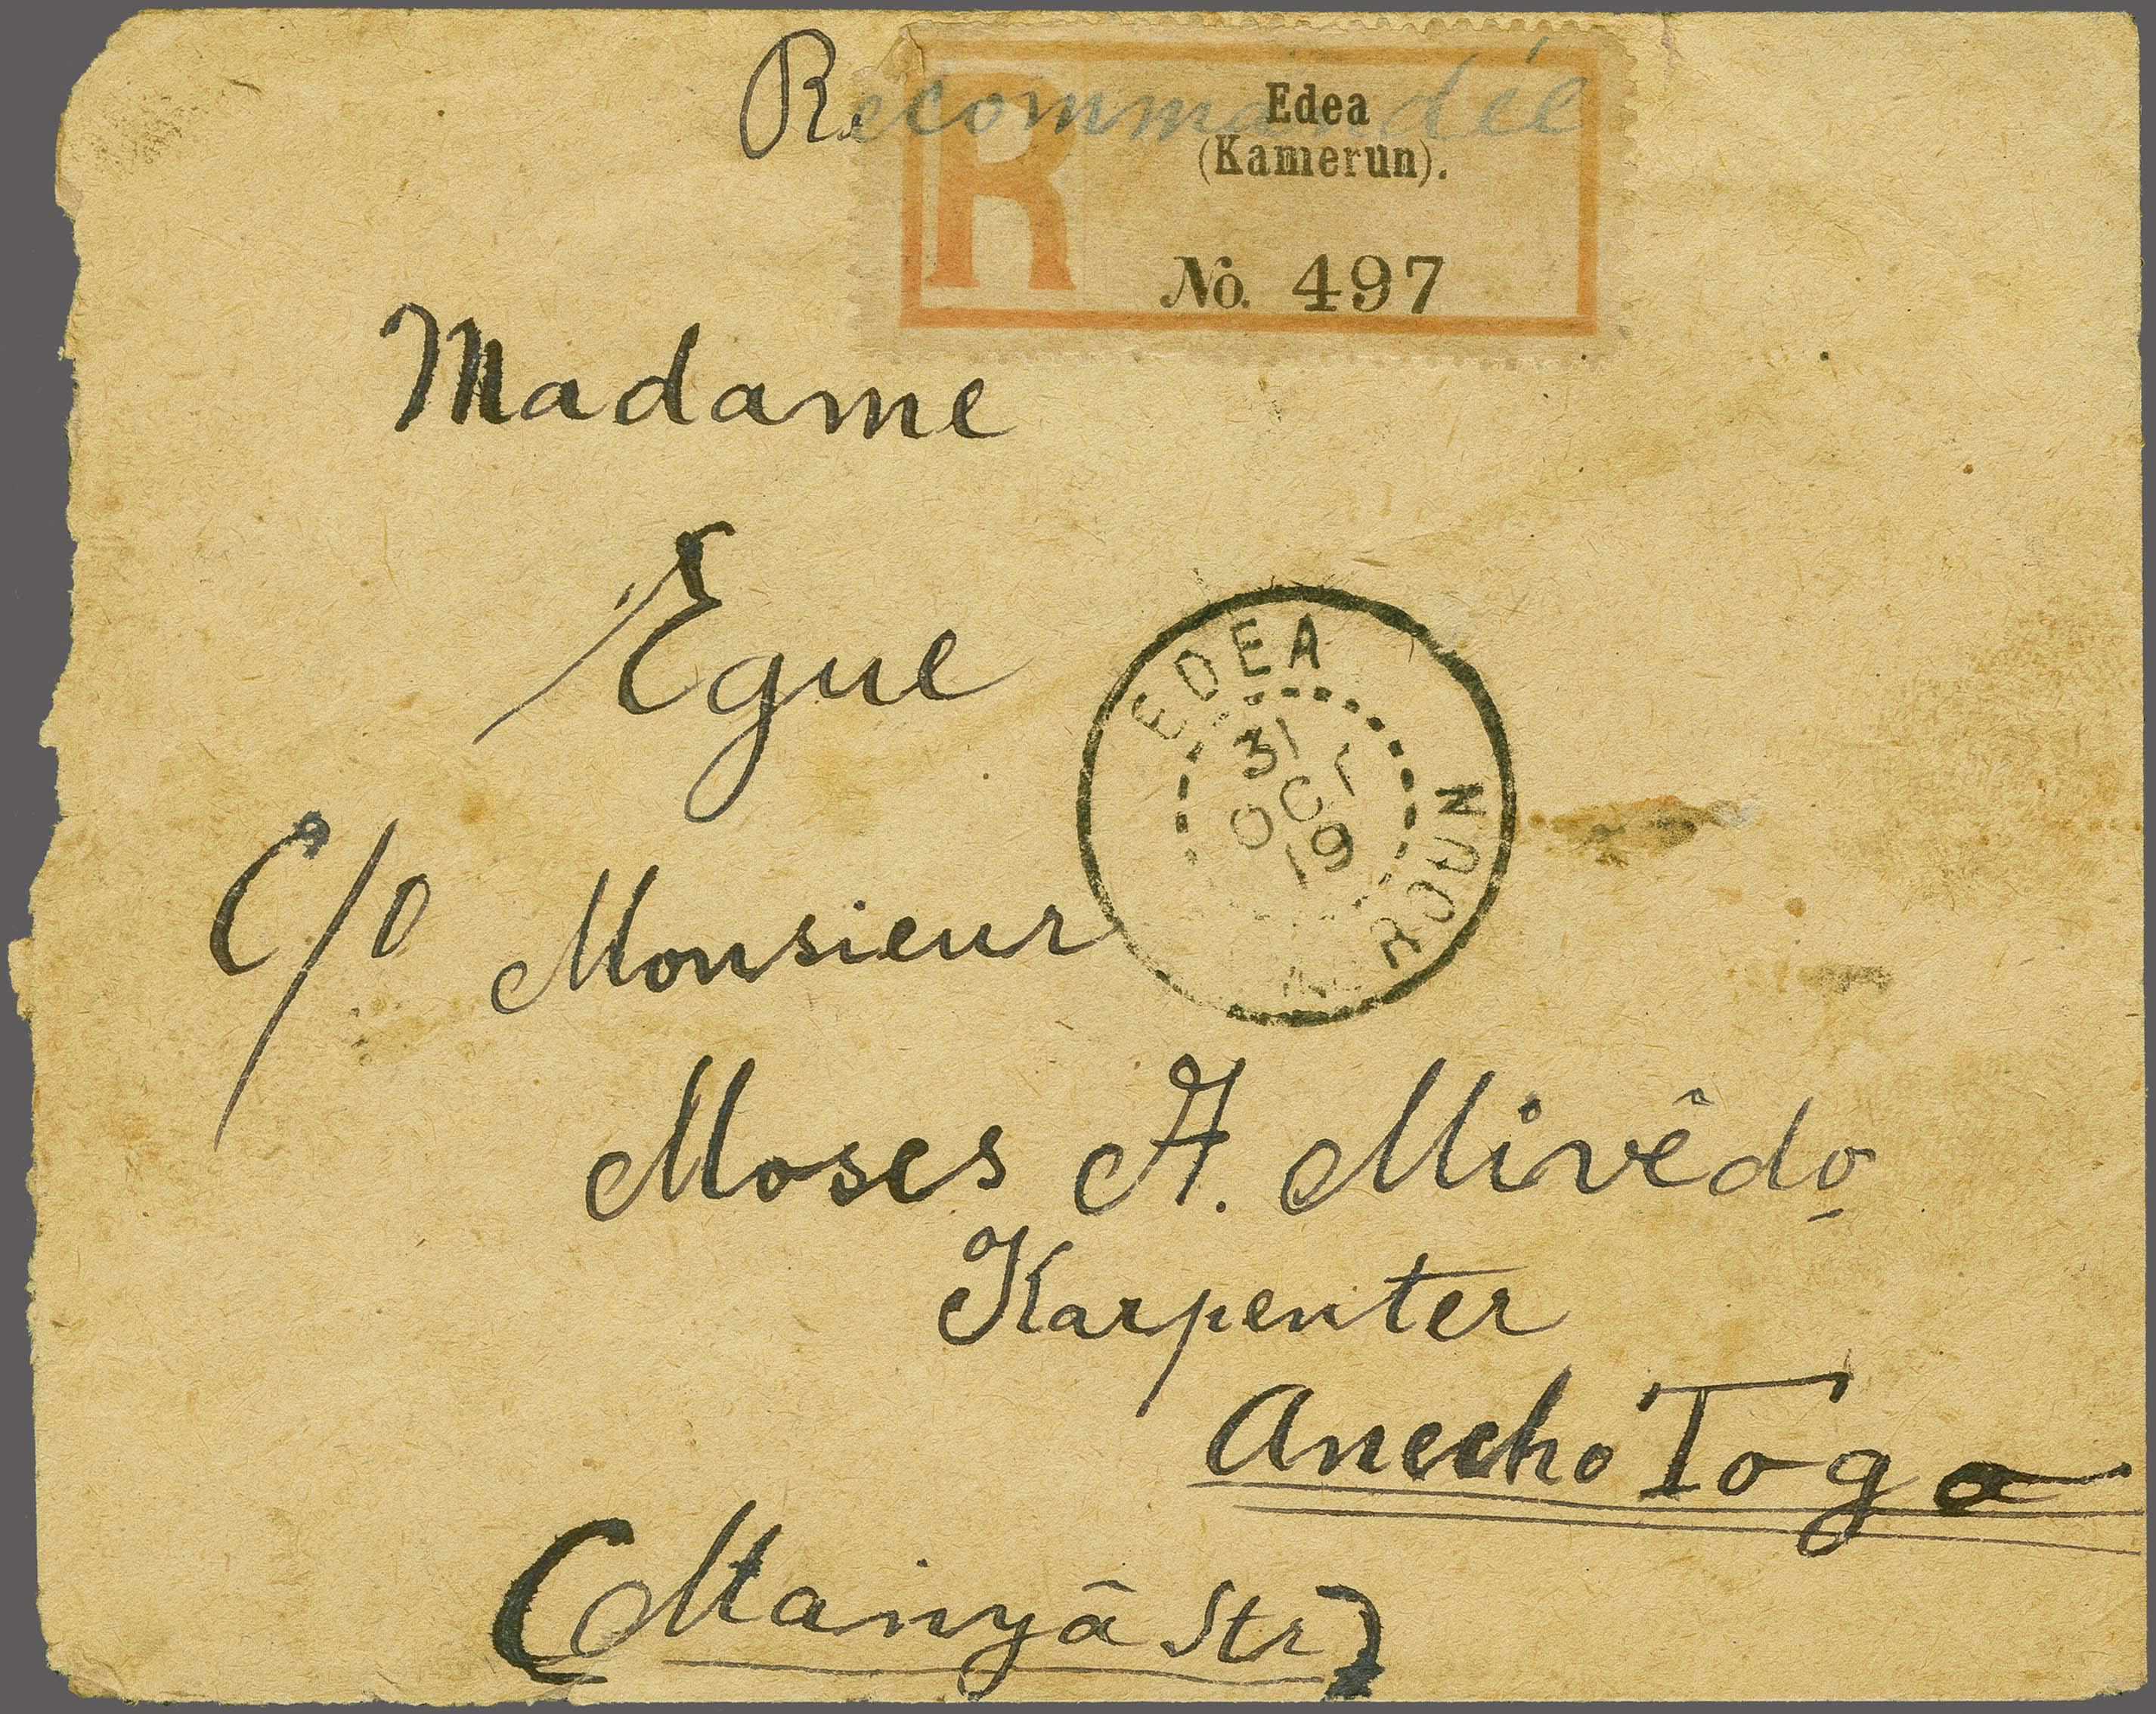 Recommandée
R
Edea
(Kamerun).
No. 497
Madame
Egue
EDEA
31
OCT
19
ROUN
C/o Monsieur
Moses A. Mivêdo
Karpenter
Anecho Togo
(Manyâ Str)